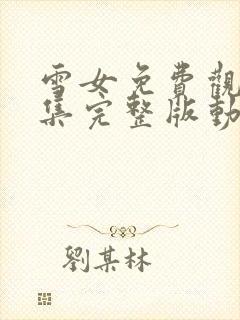 雪女免費觀
集完整版動
劉某林